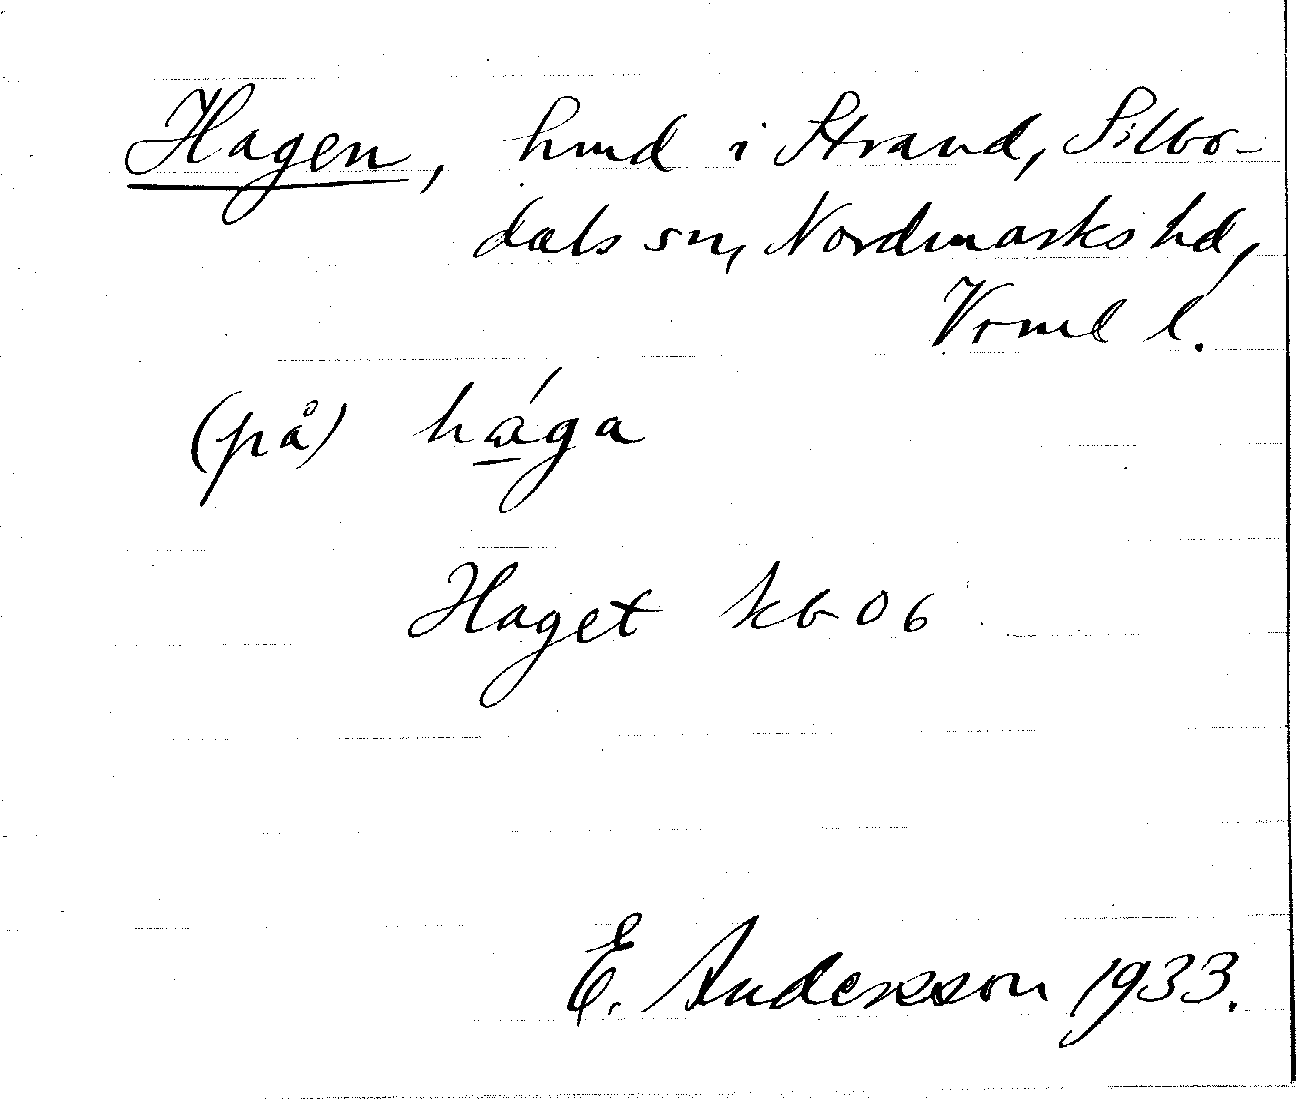 Hagen, hmd i Strand, Silbo-
dals sn, Nordmarks hd,
Vrml l.
(på) há̱ga
Haget kb 06
E. Andersson 1933.